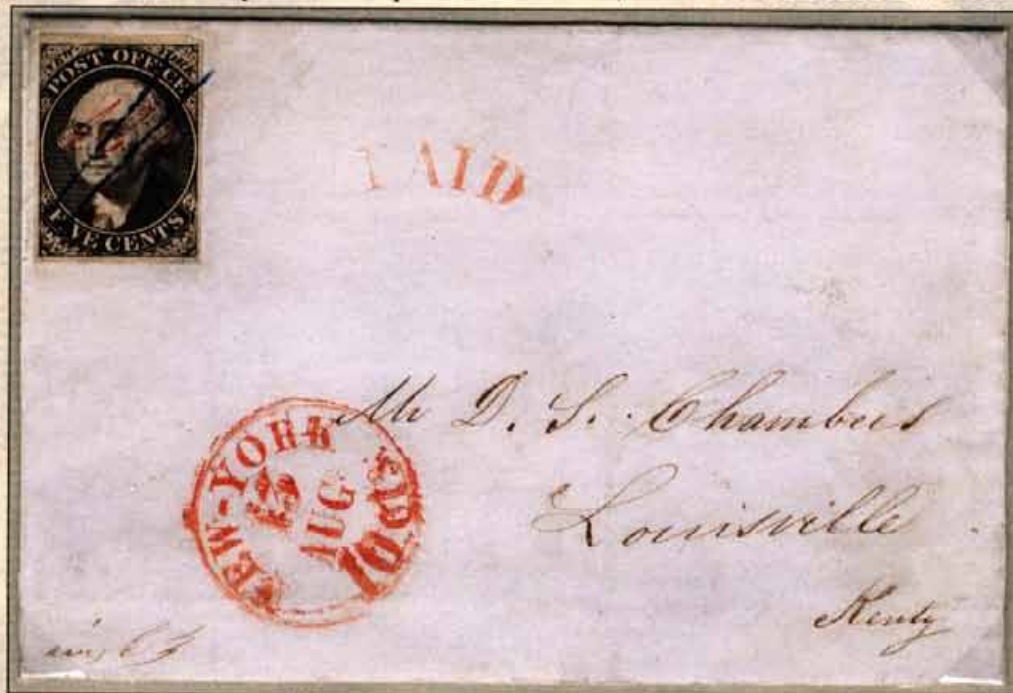 POST OFFICE
FIVE CENTS
PAID
NEW-YORK
AUG
Mr D. S. Chambers
Louisville
Kenty